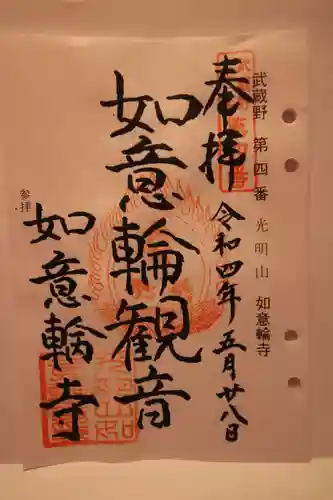 武蔵野 第四番 光明山 如意輪寺
奉拝
令和四年五月廿八日
如意輪観音
参拝
如意輪寺